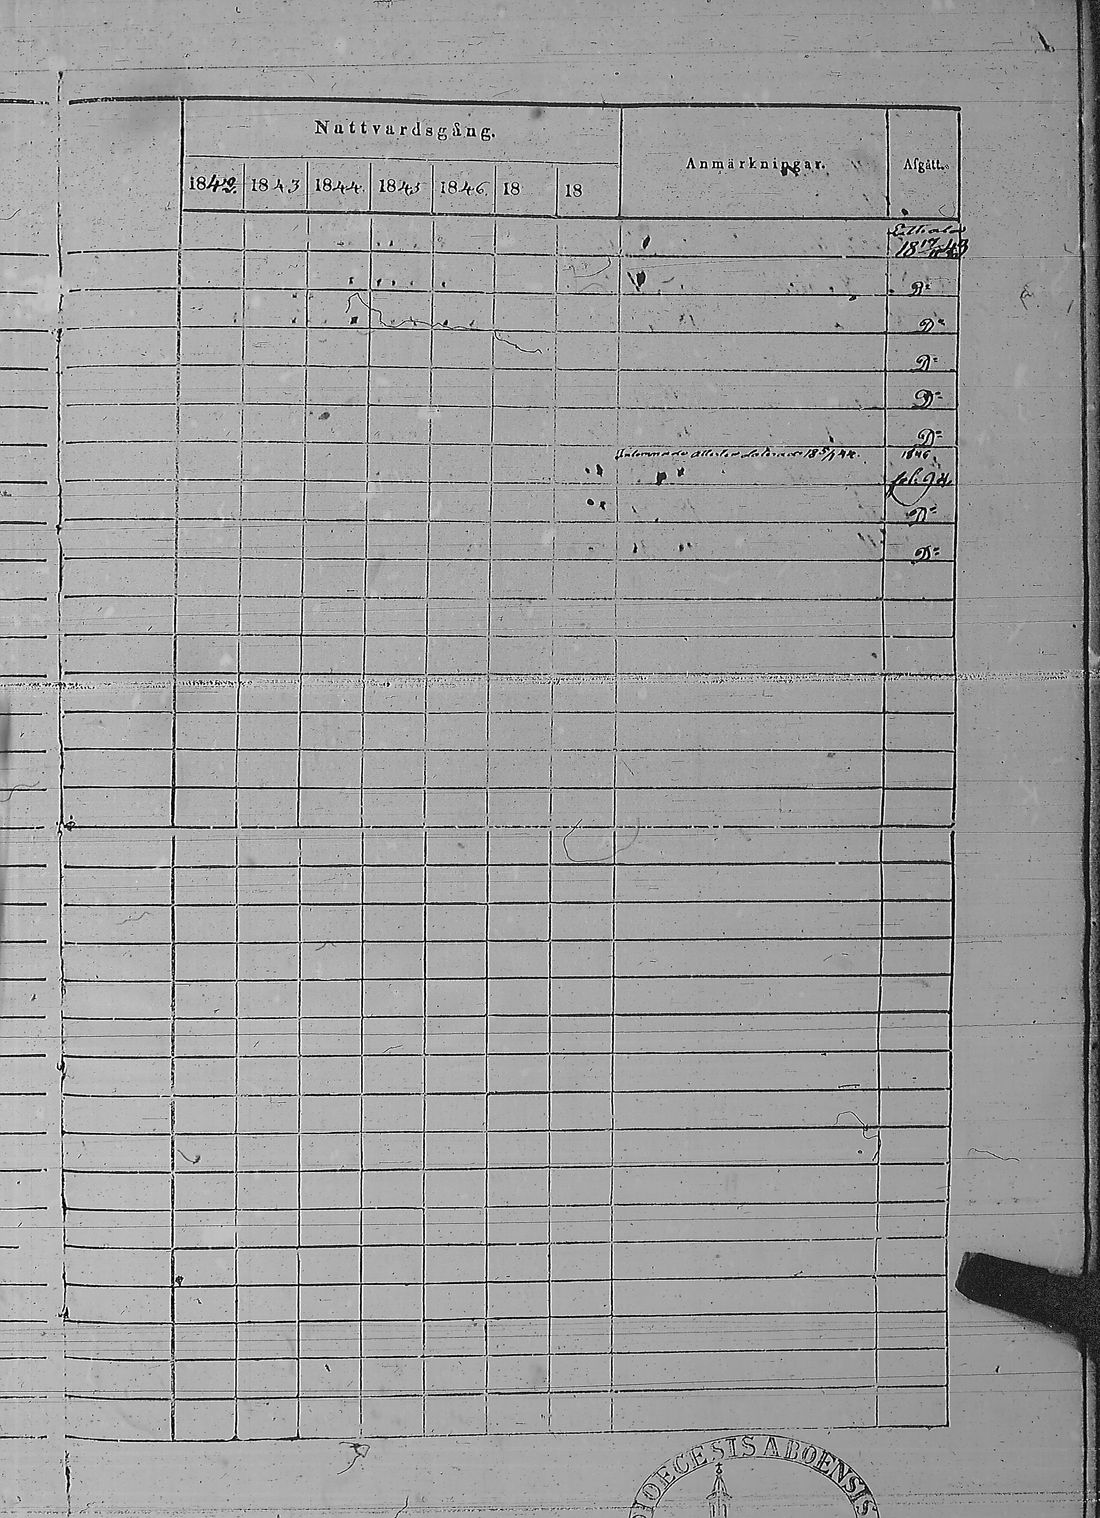 Nattvardsgång.
Anmärkningar.
Afgått.
1842. 1843 1844. 1845 1846. 18 18
D=
D=
D=
D=
D=
1846.
fol. 94
D=
D=
DIOECESIS ABOENSIS